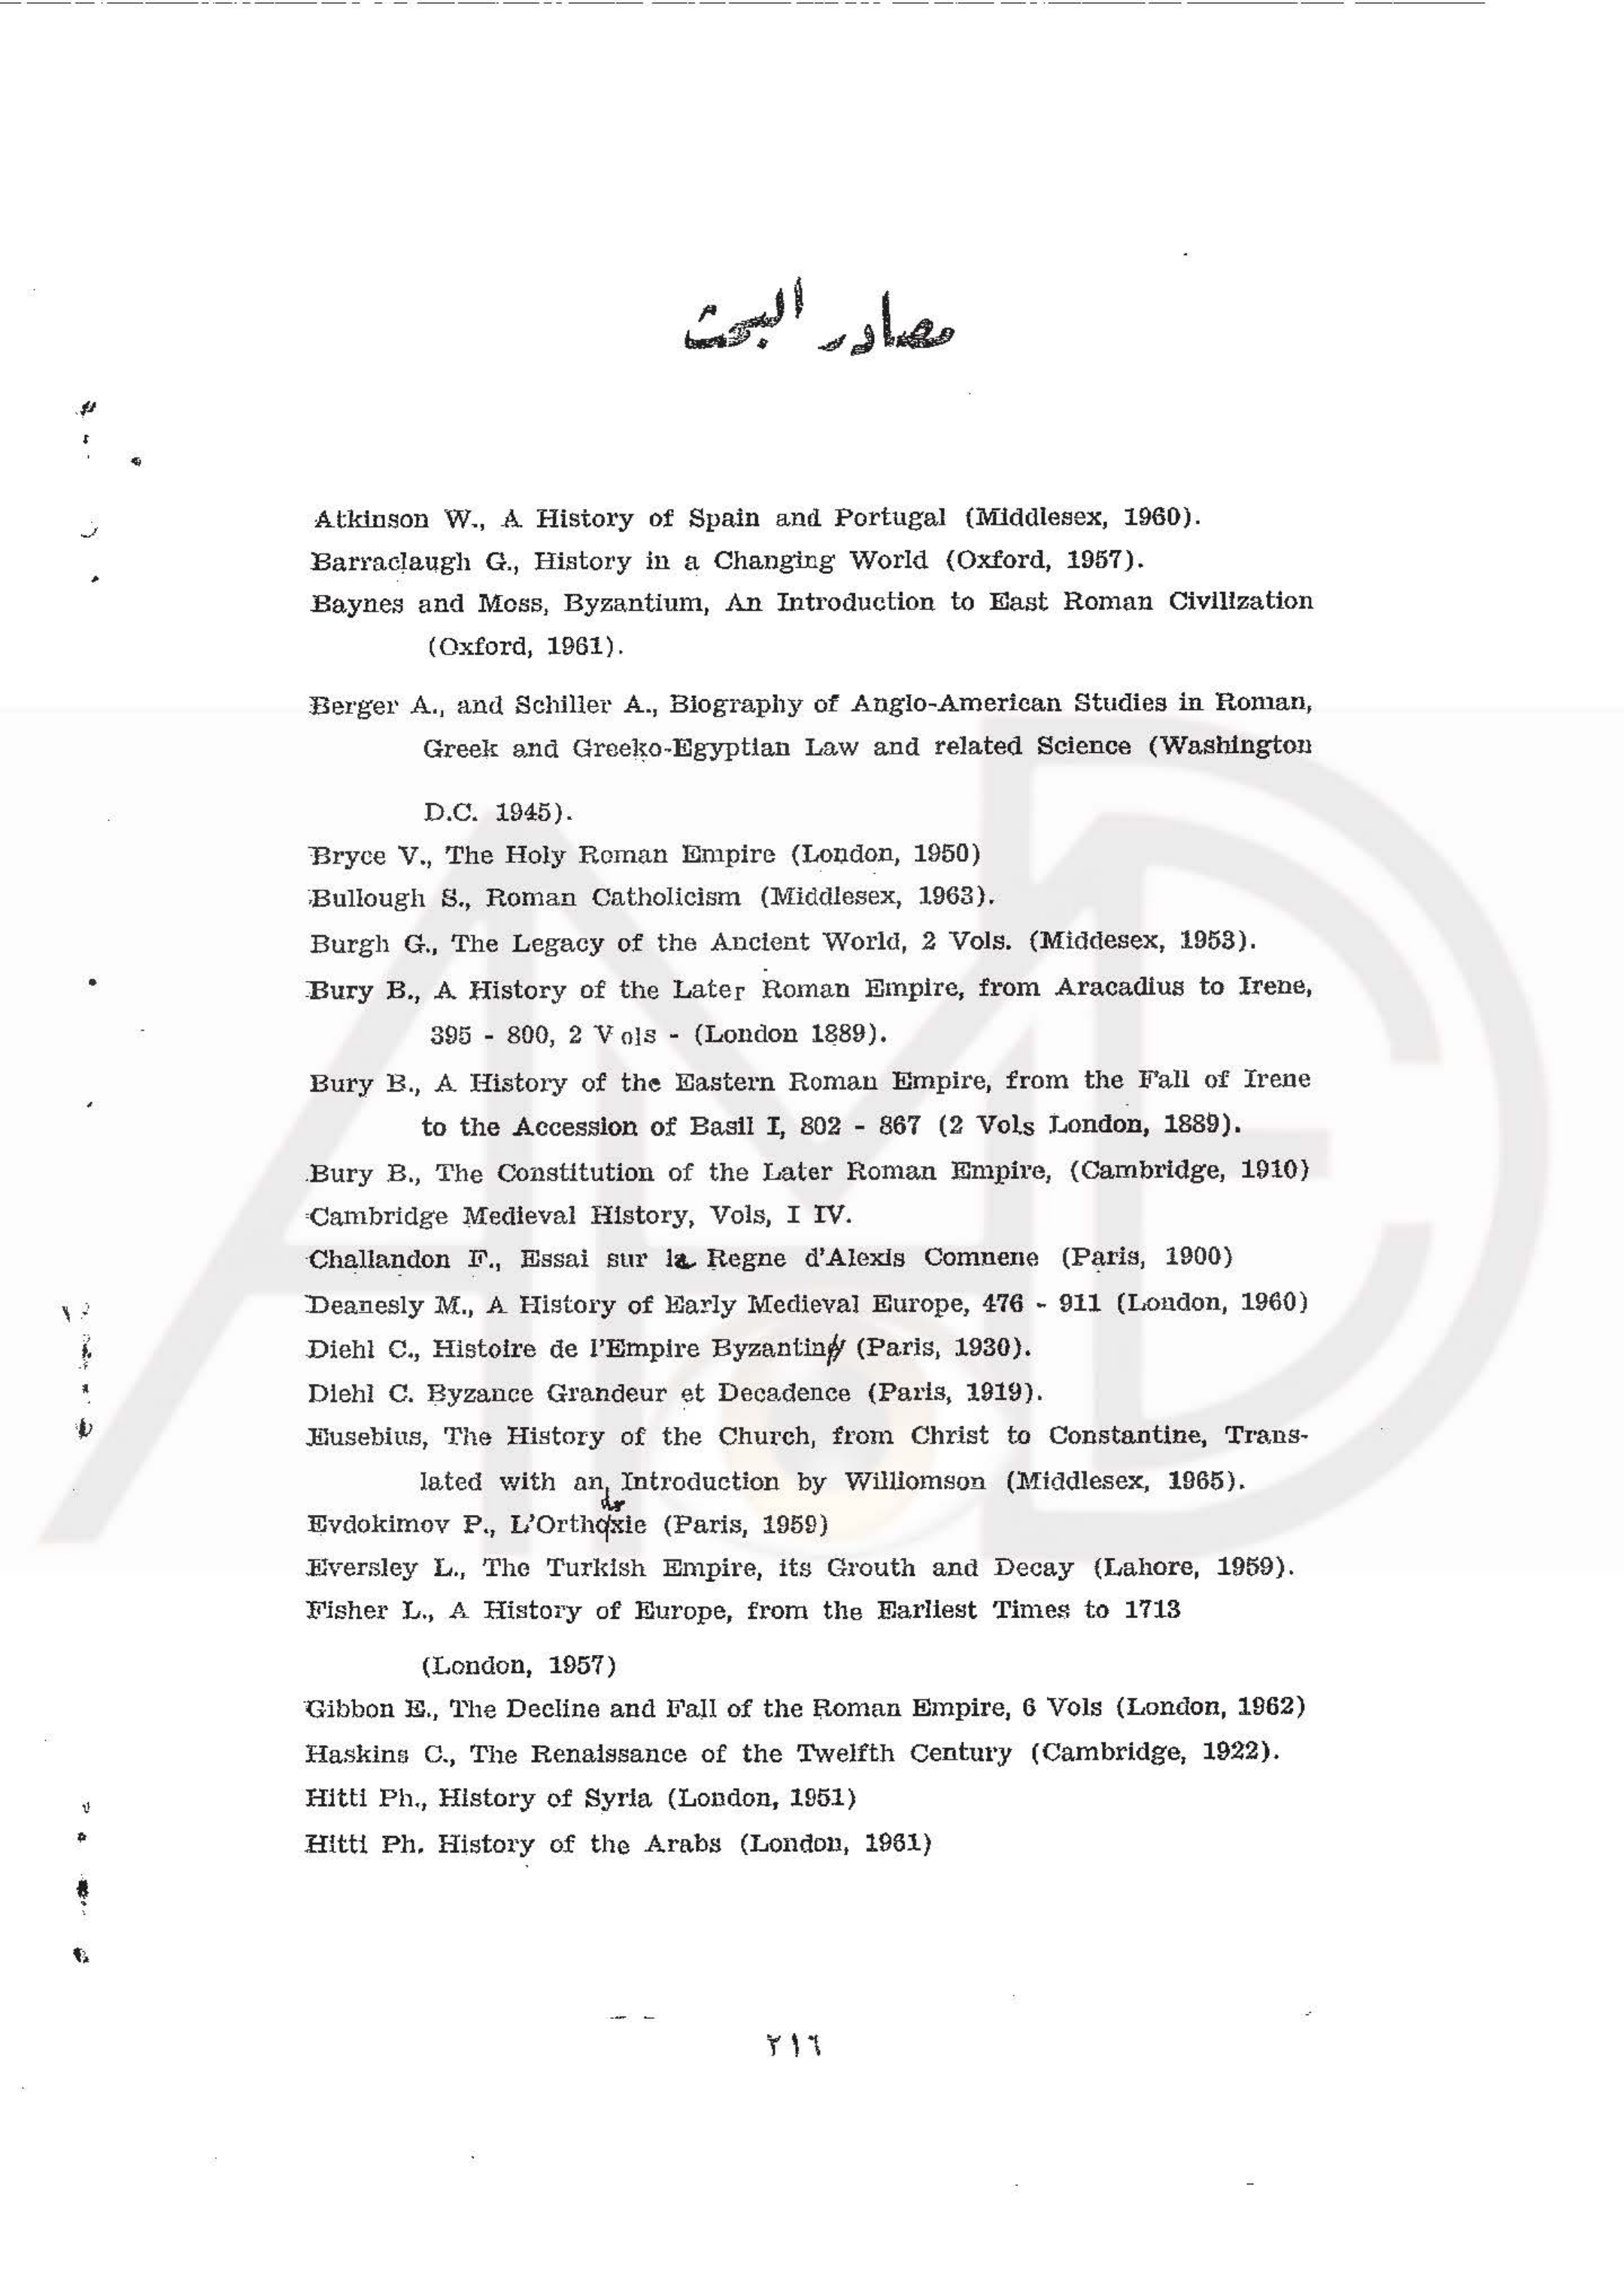 مصادر البحث
Atkinson W., A History of Spain and Portugal (Middlesex, 1960).
Barraclaugh G., History in a Changing World (Oxford, 1957).
Baynes and Moss, Byzantium, An Introduction to East Roman Civilization
(Oxford, 1961).
Berger A., and Schiller A., Biography of Anglo-American Studies in Roman,
Greek and Greeko-Egyptian Law and related Science (Washington
D.C. 1945).
Bryce V., The Holy Roman Empire (London, 1950)
Bullough S., Roman Catholicism (Middlesex, 1963).
Burgh G., The Legacy of the Ancient World, 2 Vols. (Middesex, 1953).
Bury B., A History of the Later Roman Empire, from Aracadius to Irene,
395 - 800, 2 Vols - (London 1889).
Bury B., A History of the Eastern Roman Empire, from the Fall of Irene
to the Accession of Basil I, 802 - 867 (2 Vols London, 1889).
Bury B., The Constitution of the Later Roman Empire, (Cambridge, 1910)
Cambridge Medieval History, Vols, I IV.
Challandon F., Essai sur la Regne d'Alexis Comnene (Paris, 1900)
Deanesly M., A History of Early Medieval Europe, 476 - 911 (London, 1960)
Diehl C., Histoire de l'Empire Byzantin (Paris, 1930).
Diehl C. Byzance Grandeur et Decadence (Paris, 1919).
Eusebius, The History of the Church, from Christ to Constantine, Trans-
lated with an Introduction by Williomson (Middlesex, 1965).
Evdokimov P., L'Orthoxie (Paris, 1959)
Eversley L., The Turkish Empire, its Grouth and Decay (Lahore, 1959).
Fisher L., A History of Europe, from the Earliest Times to 1713
(London, 1957)
Gibbon E., The Decline and Fall of the Roman Empire, 6 Vols (London, 1962)
Haskins C., The Renaissance of the Twelfth Century (Cambridge, 1922).
Hitti Ph., History of Syria (London, 1951)
Hitti Ph. History of the Arabs (London, 1961)
٢١٦